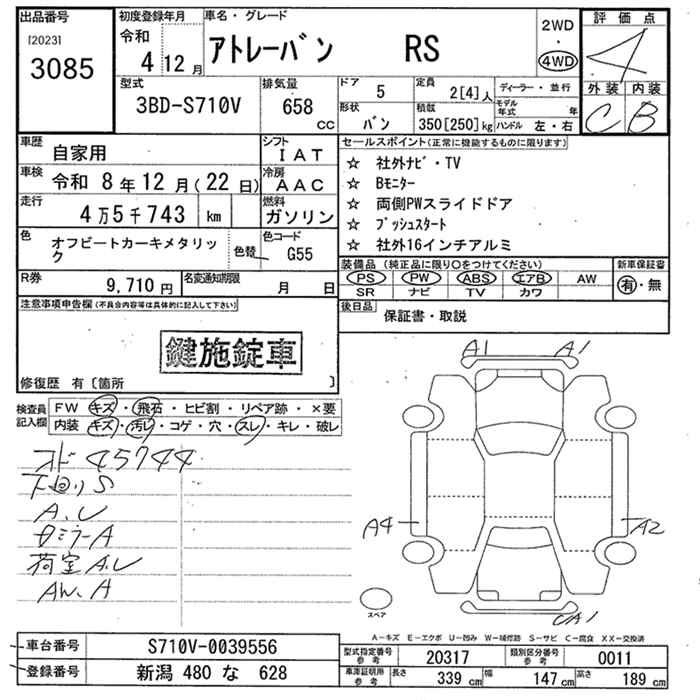 出品番号
[2023]
3085
初度登録年月
令和
4 12 月
車名・グレード
アトレーバン RS
2WD
・
4WD
評価点
4
外装 内装
C B
型式
3BD-S710V
排気量
658
cc
ドア
5
定員
2[4]人
ディーラー・並行
モデル年式
年
形状
バン
積載
350[250]kg
ハンドル 左・右
車歴
自家用
シフト
IAT
車検
令和 8年12月(22日)
冷房
AAC
走行
4万5千743 km
燃料
ガソリン
色
オフビートカーキメタリック
色替
色コード
G55
R券
9,710 円
名変通知期限
月 日
セールスポイント(正常に機能するものに限ります)
☆ 社外ナビ・TV
☆ Bモニター
☆ 両側PWスライドドア
☆ プッシュスタート
☆ 社外16インチアルミ
装備品(純正品に限り○をつけてください)
新車保証書
PS PW ABS エアB AW
SR ナビ TV カワ
有・無
後日品
保証書・取説
注意事項申告欄(不具合内容等は具体的に記入して下さい)
鍵施錠車
修復歴 有〔箇所 〕
検査員記入欄
FW キズ・飛石・ヒビ割・リペア跡・×要
内装 キズ・汚レ・コゲ・穴・スレ・キレ・破レ
オド 45744
下回りS
A.U
タミラーA
荷室A.U
AW.A
A1 A1
A4
A2
UA1
スペア
A-キズ E-エクボ U-凹み W-補修跡 S-サビ C-腐食 XX-交換済
車台番号 S710V-0039556
登録番号 新潟 480 な 628
型式指定番号
参考
20317
類別区分番号
参考
0011
車庫証明用
参考
長さ
339 cm
幅
147 cm
高さ
189 cm